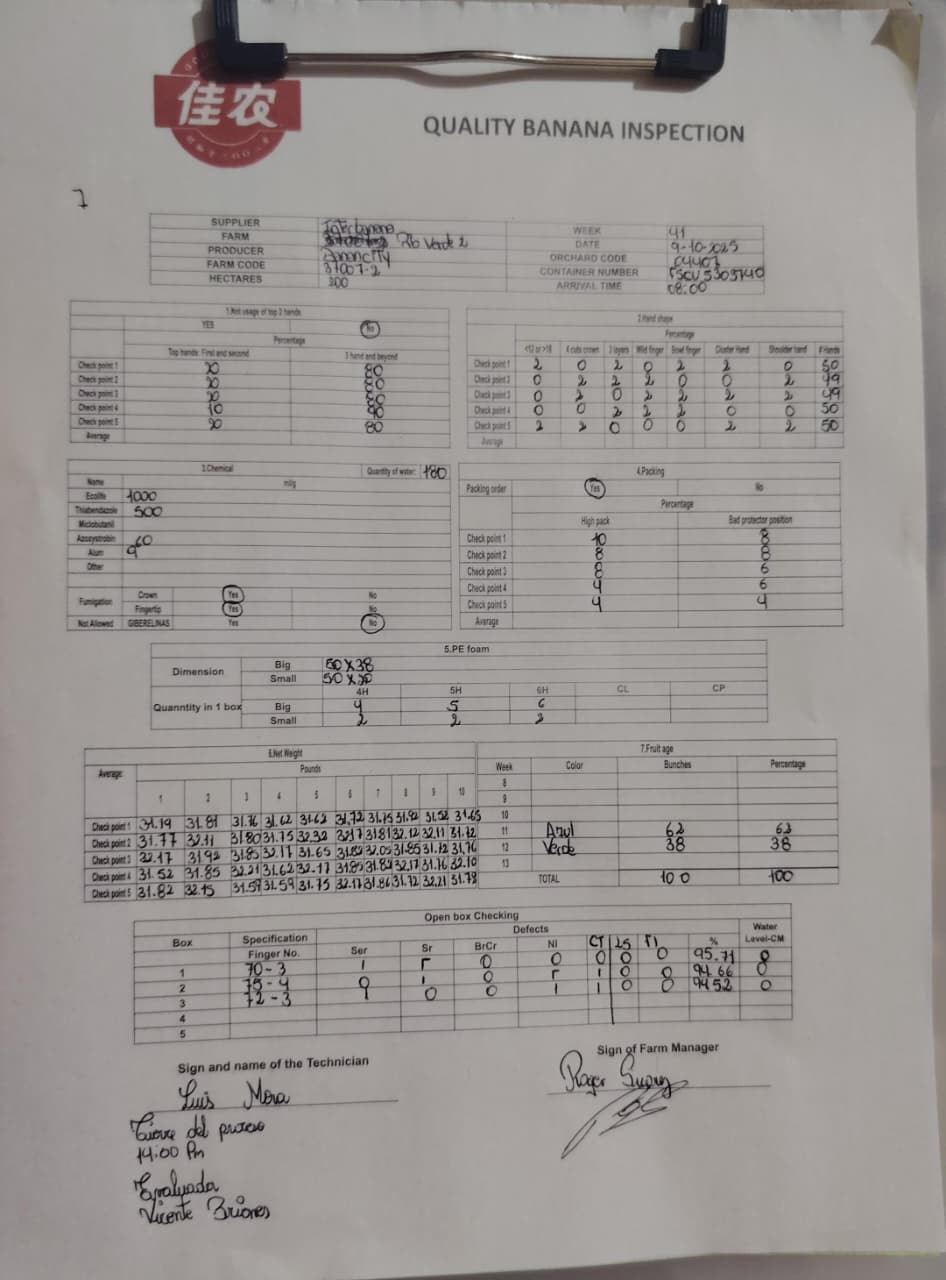 佳农
QUALITY BANANA INSPECTION
7
SUPPLIER Interbanana
FARM Rio Verde 2
PRODUCER
FARM CODE 31007-2
HECTARES 300
WEEK 41
DATE 9-10-2025
ORCHARD CODE 04407
CONTAINER NUMBER
ARRIVAL TIME 08:00
1.Not usage of top 2 hands
YES No
Percentage
Top hands: First and second 3 hand and beyond
Check point 1 20 80
Check point 2 20 80
Check point 3 20 80
Check point 4 10 90
Check point 5 20 80
Average
2.Hand shape
Percentage
<12 or >18 4 cuts crown 3 layers Wild finger Bowl finger Cluster Hand Shoulder hand # Hands
Check point 1 2 0 2 0 2 2 0 50
Check point 2 0 2 2 2 0 0 2 49
Check point 3 0 2 0 2 2 2 2 49
Check point 4 0 0 2 2 2 0 0 50
Check point 5 2 2 0 0 0 2 2 50
Average
3.Chemical Quantity of water: 180
Name ml/g
Ecolife 1000
Thiabendazole 500
Miclobutanil
Azoxystrobin 60
Alum 9
Other
Fumigation Crown Yes No
Fingertip Yes No
Not Allowed GIBERELINAS Yes No
4.Packing
Packing order Yes No
Percentage
High pack Bad protector position
Check point 1 10 8
Check point 2 8 8
Check point 3 8 6
Check point 4 4 6
Check point 5 4 4
Average
5.PE foam
Dimension Big 50x38
Small 50x20
4H 5H 6H CL CP
Quanntity in 1 box Big 4 5 6
Small 2 2 2
6.Net Weight
Average: Pounds
1 2 3 4 5 6 7 8 9 10
Check point 1 31.19 31.81 31.76 31.62 31.62 31.72 31.75 31.92 31.65
Check point 2 31.77 32.11 31.80 31.75 32.32 32.17 31.81 32.12 32.11 31.72
Check point 3 32.17 31.92 31.85 32.17 31.65 31.82 32.05 31.85 31.72 31.76
Check point 4 31.52 31.85 32.21 31.62 32.17 31.85 31.82 32.17 31.76 32.10
Check point 5 31.82 32.15 31.59 31.59 31.75 32.17 31.86 31.72 32.21 31.78
7.Fruit age
Week Color Bunches Percentage
8
9
10
11 Azul 62 62
12 Verde 38 38
13
TOTAL 100 100
Open box Checking
Box Specification Defects Water
Finger No. Ser Sr BrCr NI CT LS % Level-CM
1 70-3 1 0 0 0 0 0 95.71 0
2 75-4 0 1 0 1 0 0 94.66 0
3 72-3 1 0 0 1 1 0 0 94.52 0
4
5
Sign and name of the Technician
Luis Mora
Cierre del proceso
14:00 Pm
Evaluada
Vicente Briones
Sign of Farm Manager
Roger